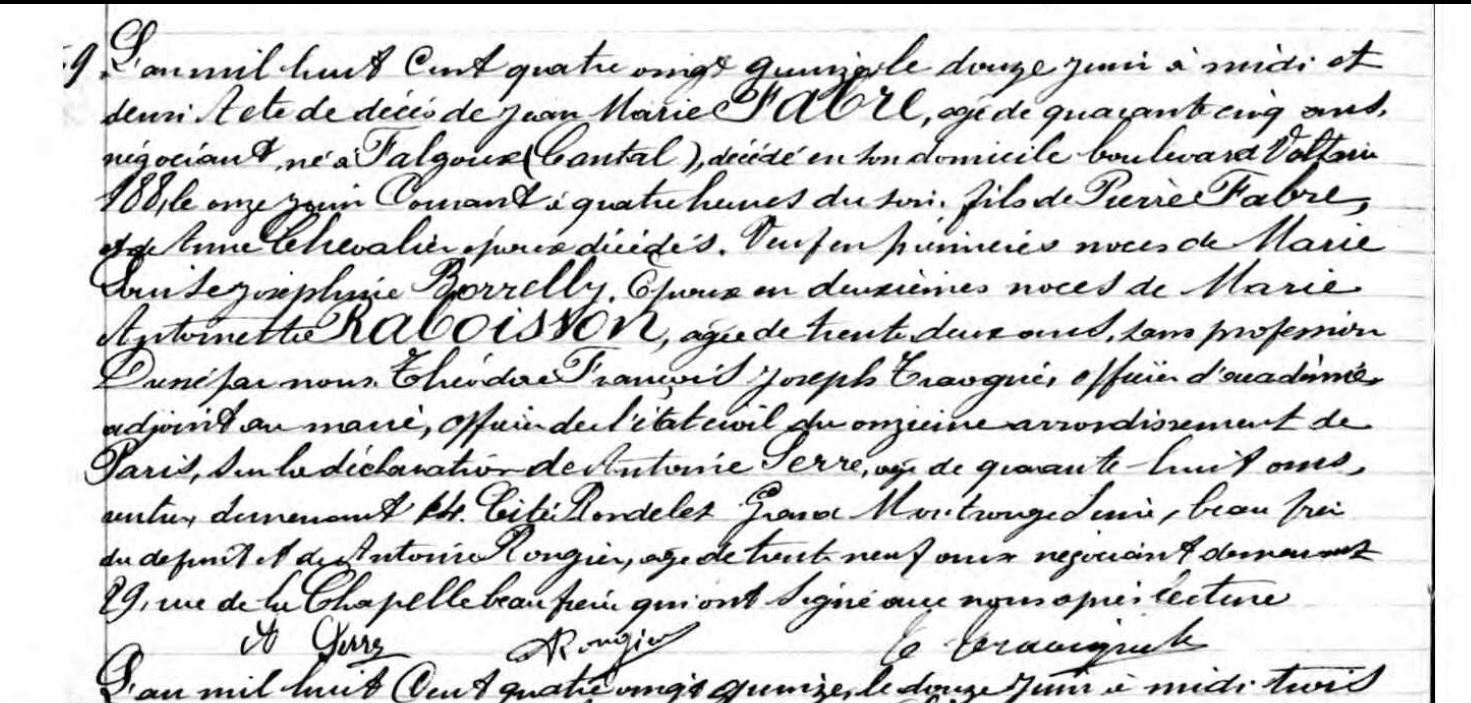 9. L'an mil huit cent quatre vingt quinze le douze juin à midi et
demi Acte de décès de Jean Marie Fabre, agé de quarante cinq ans,
négociant, né à Falgoux (Cantal), décédé en son domicile boulevard Voltaire
188, le onze juin Courant à quatre heures du soir. fils de Pierre Fabre,
et de Anne Chevalier époux décédés. Veuf en premières noces de Marie
Louise Joséphine Borrelly. Epoux en deuxièmes noces de Marie
Antoinette Raboisson, agée de trente deux ans, sans profession
Dressé par nous Théodore François Joseph officier d'académie,
adjoint au maire, officier de l'état civil du onzième arrondissement de
Paris, sur la déclaration de Antoine Serre, agé de quarante huit ans,
rentier, demeurant 14. Cité Rondelet Grand Montrouge Seine, beau frère
du defunt et de Antoine Rongier, agé de trente neuf ans négociant demeurant
29, rue de la Chapelle beau frère qui ont signé avec nous après lecture
A Serre ARongier
L'an mil huit Cent quatre vingt quinze, le douze Juin à midi trois